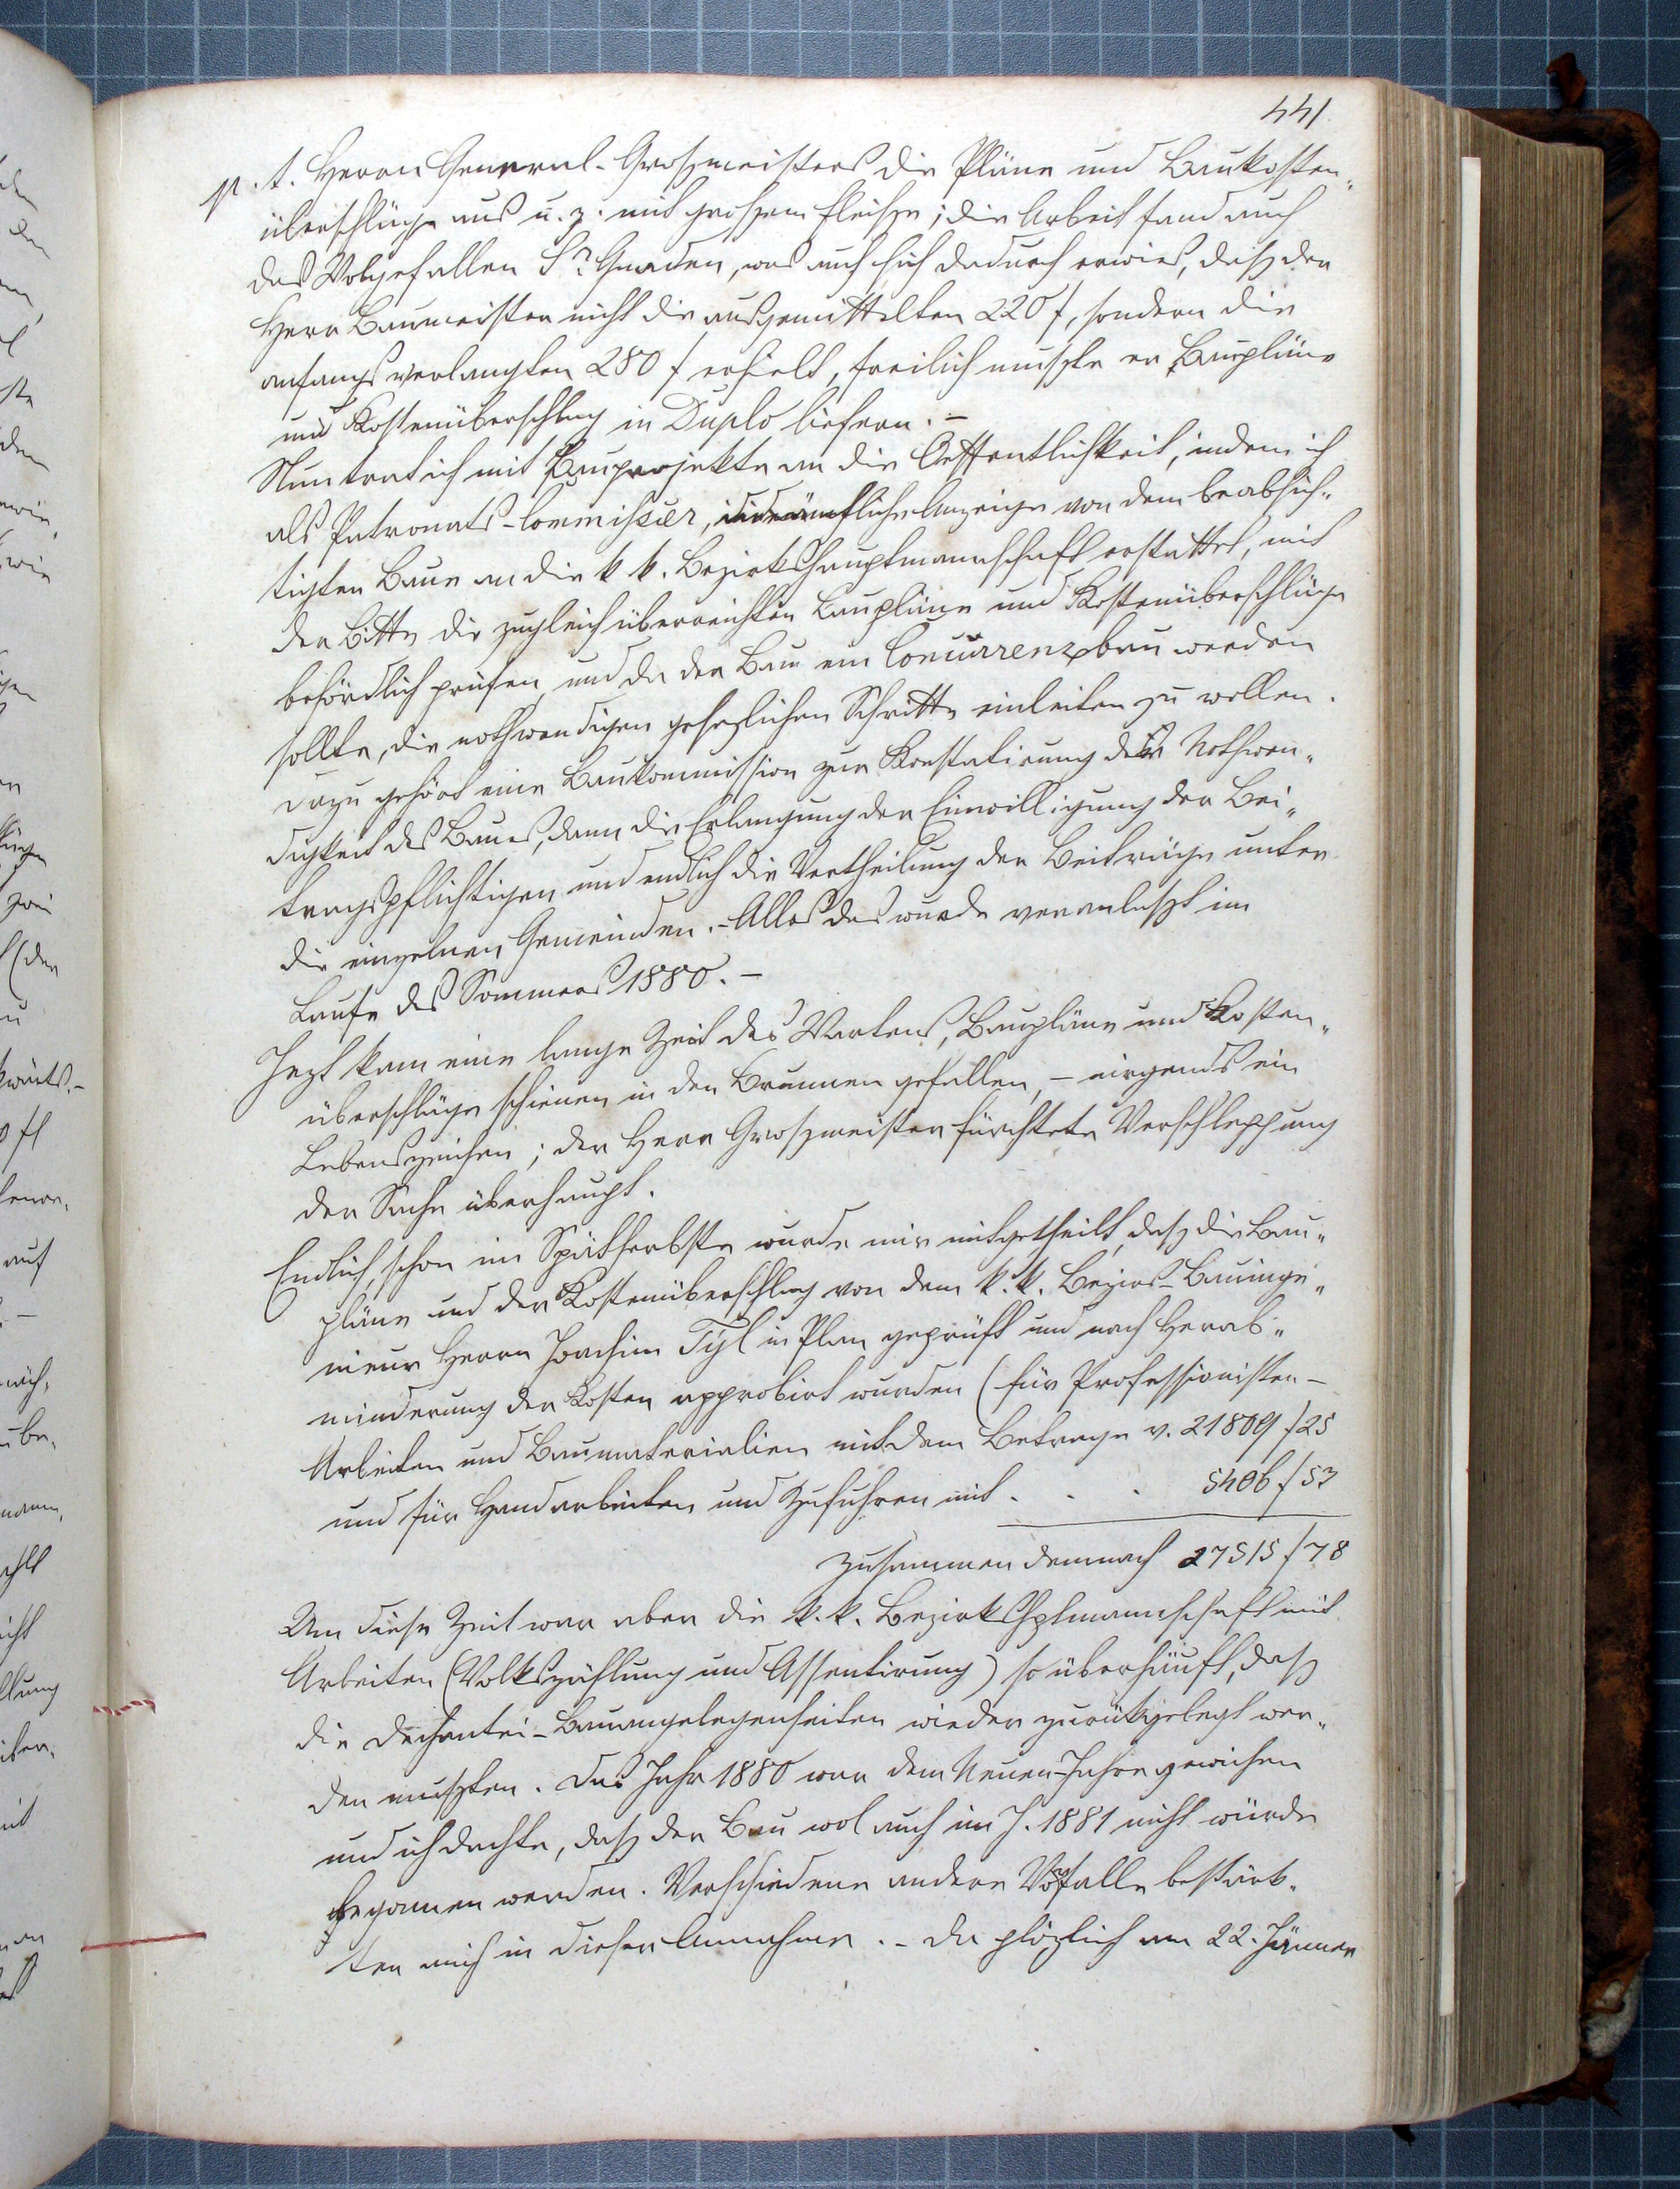 441
p. t. Herrn General-Großmeisters die Pläne und Baukosten„
überschläge aus u. z. mit großem Fleiße; die Arbeit fand auch
das Wolgefallen Sr Gnaden, was auch sich dadurch erwies, daß der
Herr Baumeister nicht die ausgemittelten 220 f, sondern die
anfangs verlangten 280 f erhielt, freilich mußte er Baupläne
und Kostenüberschlag in Duplo liefern. –
Nun trat ich mit Bauprojekte an die Oeffentlichkeit, indem ich
als Patronats-Commissär, die ämtliche Anzeige von dem beabsich„
tigten Baue an die k k. Bezirkshauptmannschaft erstattet, mit
der Bitte die zugleich überreichten Baupläne und Kostenüberschläge
behördlich prüfen und da der Bau ein Concurrenzbau werden
sollte, die nothwendigen gesezlichen Schritte einleiten zu wollen.
Dazu gehört eine Baukommission zur Konstatirung der Nothwen„
digkeit des Baues, dann die Erlangung der Einwilligung der Bei„
tragspflichtigen und endlich die Vertheilung der Beiträge unter
die einzelnen Gemeinden. – Alles das wurde veranlaßt im
Laufe des Sommers 1880. –
Jezt kam eine lange Zeit des Wartens, Baupläne und Kosten„
überschläge schienen in den Brunnen gefallen, – nirgends ein
Lebenszeichen; der Herr Großmeister fürchtete Verschleppung
der Sache überhaupt.
Endlich, schon im Spätherbste wurde mir mitgetheilt, daß die Bau„
pläne und der Kostenüberschlag von dem k. k. Bezirs-Bauinge„
nieur Herrn Joachim Tyl in Plan geprüft und nach Herab„
minderung der Kosten approbirt wurden (für Professionisten–
Arbeiten und Baumaterialien mit dem Betrage v. 21809 f 25
und für Handarbeiten und Zufuhren mit . . . 5406 f 53
Zusammen demnach 27515 f 78
Um diese Zeit war aber die k. k. Bezirkshptmannschaft mit
Arbeiten (Volkszählung und Assentirung) so überhäuft, daß
die Dechantei-Bauangelegenheiten wieder zurükgelegt wer„
den mußten. Das Jahr 1880 war dem Neuen-Jahre gewichen
und ich dachte, daß der Bau wol auch im J. 1881 nicht würde
begonnen werden. Verschiedene andere Vorfälle bestärk„
ten mich in dieser Annahme. – Da plözlich am 22. Jänner